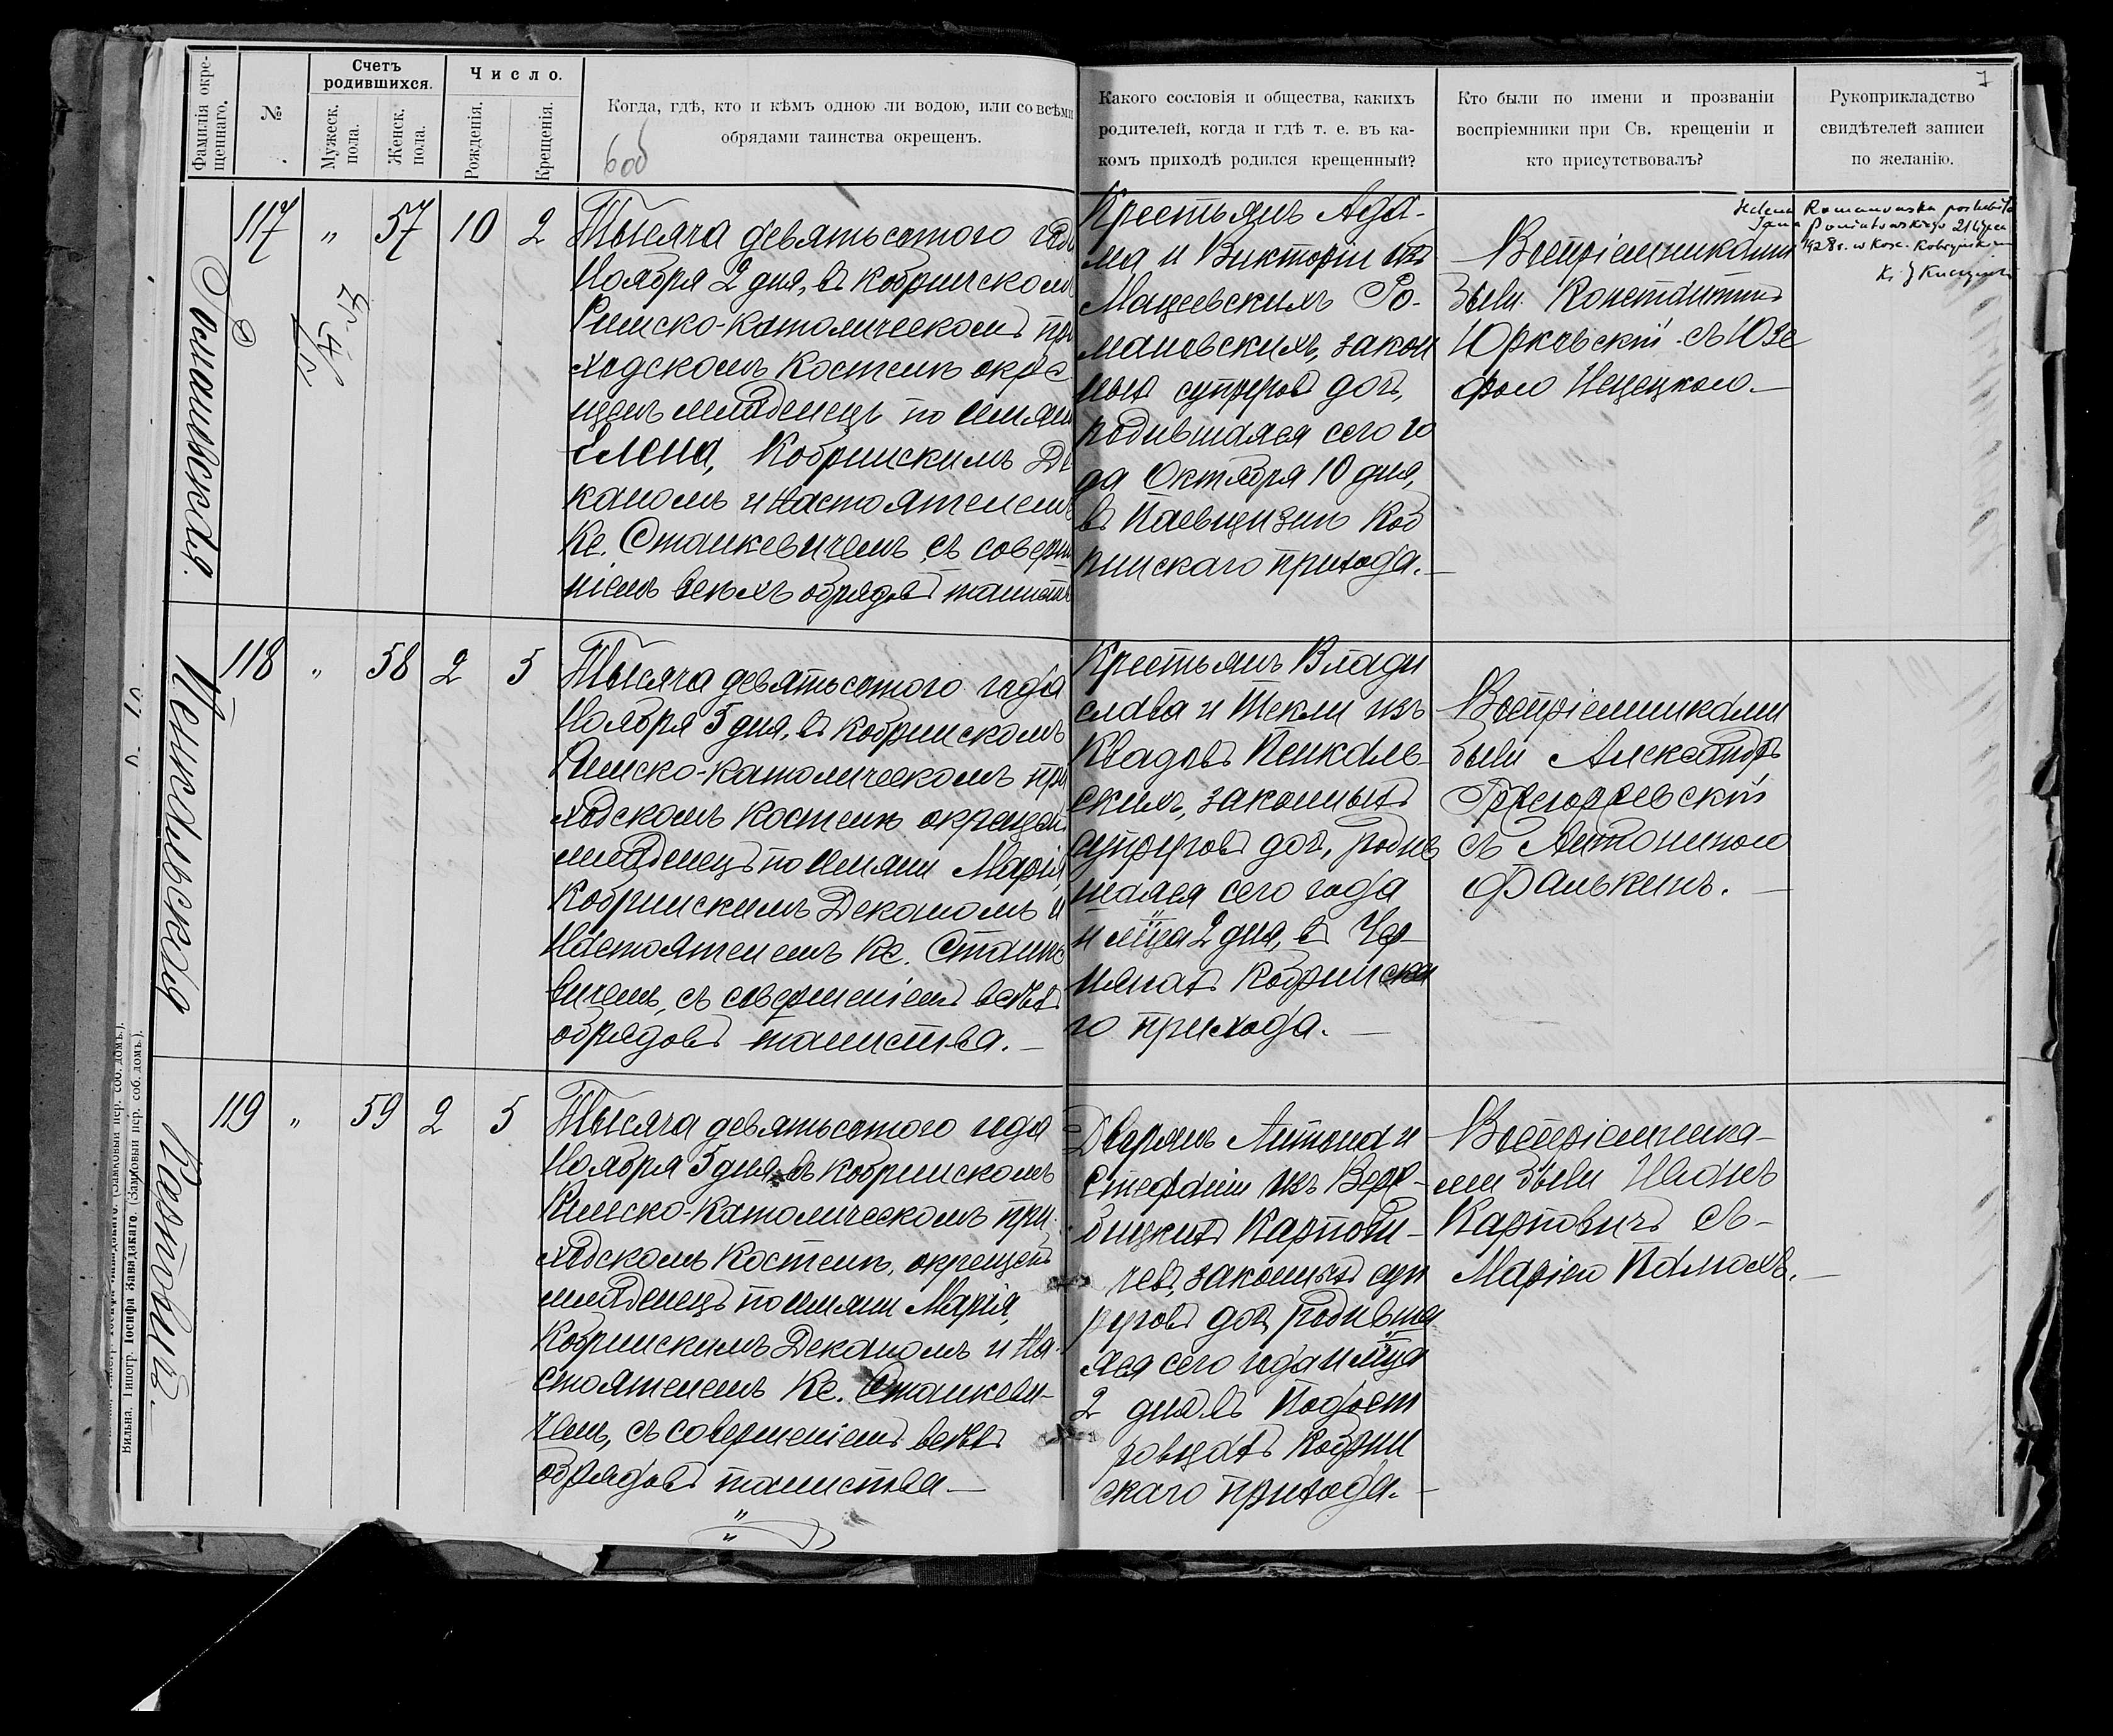 Фамилія окре-
щеннаго.
№
Счетъ
родившихся.
Мужеск.
пола.
Женск.
пола.
Число.
Рожденія.
Крещенія.
Когда, гдѣ, кто и кѣмъ одною ли водою, или со всѣми
обрядами таинства окрещенъ.
Какого сословія и общества, какихъ
родителей, когда и гдѣ т. е. въ ка-
комъ приходѣ родился крещенный?
Кто были по имени и прозваніи
воспріемники при Св. крещеніи и
кто присутствовалъ?
Рукоприкладство
свидѣтелей записи
по желанію.
7
Романовская.
117 " 57 10 2
Тысяча девятьсотого года
Ноября 2 дня, въ Кобринскомъ
Римско-Католическомъ при
ходскомъ Костелѣ окре
щенъ младенецъ по имени
Елена, Кобринскимъ Де
каномъ и Настоятелемъ
Кс. Станкевичемъ, съ соверше
ніемъ всѣхъ обрядовъ таинства
Крестьянъ Ада-
ма и Викторіи изъ
Мацеевскихъ Ро-
мановскихъ, закон
ныхъ супруговъ дочь,
родившаяся сего го
да Октября 10 дня,
Коб
ринскаго прихода.
Воспріемниками
были Константинъ
Юрковскій съ Юзе
фою
Helena Romanowska poslubiła
Jana Poniatowskiego 21 lipca
1928 r. w Kośc. Kobryńskim
Пенкальская
118 " 58 2 5
Тысяча девятьсотого года
Ноября 5 дня, въ Кобринскомъ
Римско-Католическомъ при
ходскомъ Костелѣ окрещенъ
младенецъ по имени Марія,
Кобринскимъ Деканомъ и
Настоятелемъ Кс. Станке
вичемъ, съ совершеніемъ всѣхъ
обрядовъ таинства.
Крестьянъ Влади
слава и Текли изъ
Квадовъ Пенкаль
скихъ, законныхъ
супруговъ дочь, родив
шаяся сего года
и мца 2 дня, въ Чер
нянахъ Кобринска
го прихода.
Воспріемниками
были Александръ
съ Антониною
Фалькинъ.
Карповичъ.
119 " 59 2 5
Тысяча девятьсотого года
Ноября 5 дня въ Кобринскомъ
Римско-Католическомъ при
ходскомъ Костелѣ, окрещенъ
младенецъ по имени Марія,
Кобринскимъ Деканомъ и На-
стоятелемъ Кс. Станкеви-
чемъ, съ совершеніемъ всѣхъ
обрядовъ таинства
Дворянъ Антона и
Стефаніи изъ Верж-
бицкихъ Карпови-
чевъ, законныхъ суп
руговъ дочь, родивша
яся сего года и мца
2 дня въ
Кобрин
скаго прихода.
Воспріемника-
ми были Иванъ
Карповичъ съ
Маріею
Вильна. Типогр. Іосифа Завадзкаго. (Замковый пер. соб. домъ.).